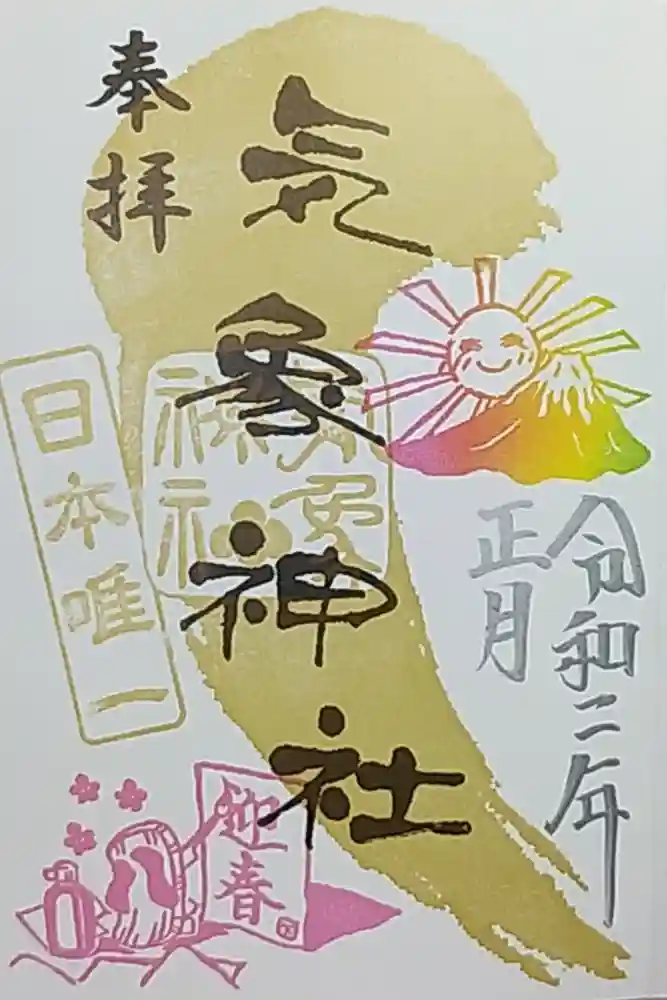 奉拝
気象神社
令和二年
正月
日本唯一
気象
神社
迎春